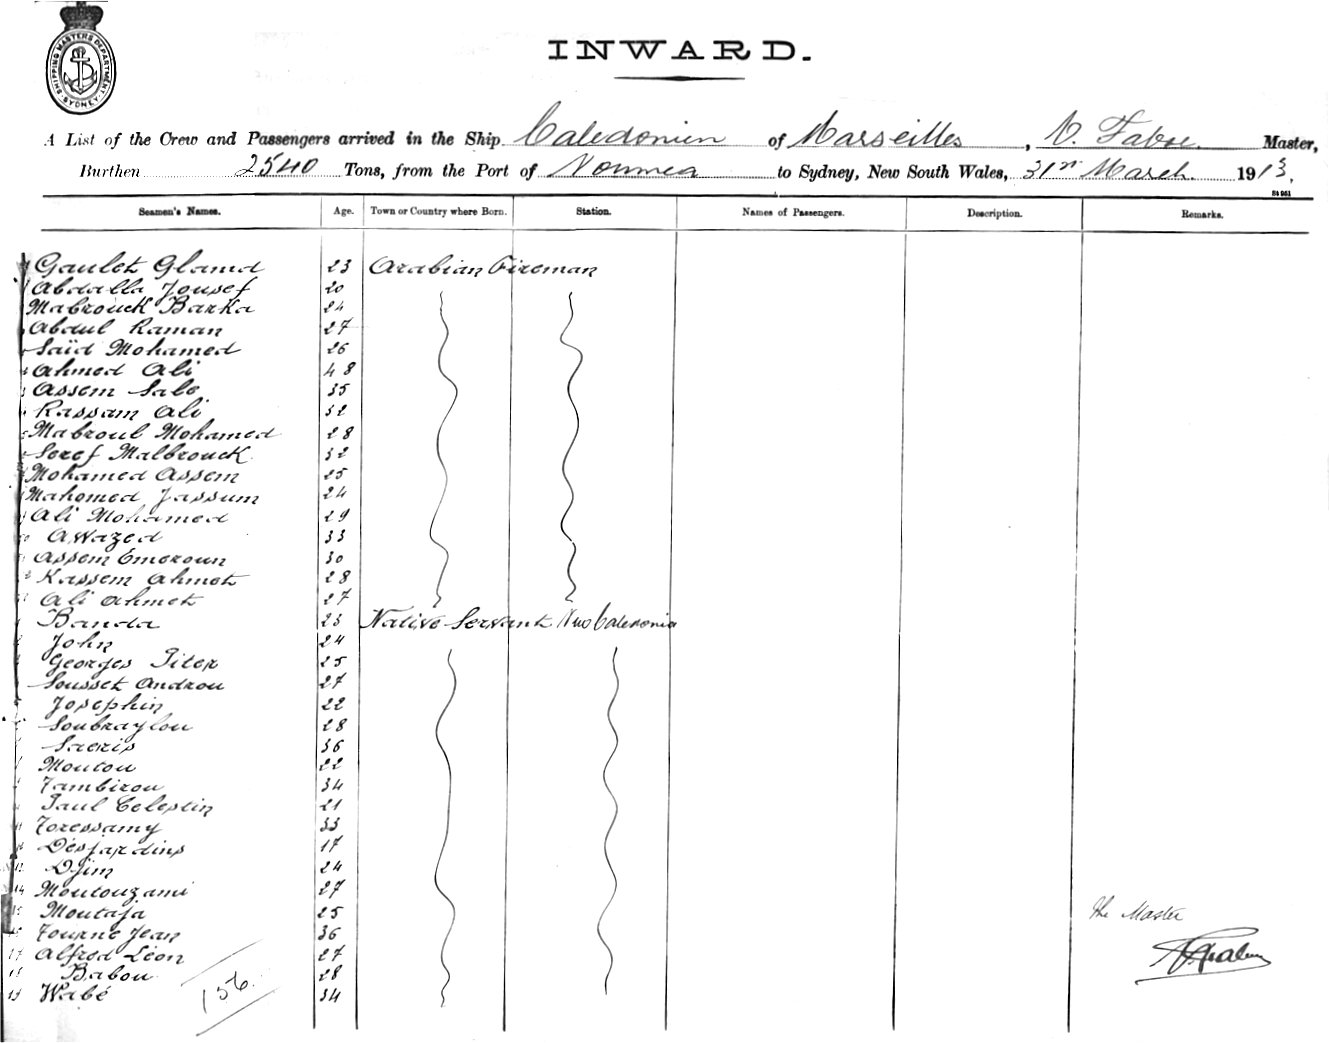 SHIPPING MASTERS DEPARTMENT SYDNEY
INWARD.
A List of the Crew and Passengers arrived in the Ship Caledonien of Marseilles, Master,
Burthen 2540 Tons, from the Port of Noumea to Sydney, New South Wales, 31st March 1913.
Seamen's Names. Age. Town or Country where Born. Station. Names of Passengers. Description. Remarks.
Gaulet Glamd 23 Arabian Fireman
Abdalla Yousef 20
Mabrouck Barka 24
Abdul Raman 27
Saïd Mohamed 26
Ahmed Ali 48
Assem Sale 35
Kassam Ali 32
Mabroul Mohamed 28
Seref Malbrouck 32
Mohamed Assem 25
Mahomed Jassum 24
Ali Mohamed 29
Awazed 33
Assem Emeroun 30
Kassem Ahmet 28
Ali Ahmet 27
Banda 23 Native Servant New Caledonia
John 24
Georges Piter 25
Sousset Androu 27
Josephin 22
Soubraylou 28
Saeris 36
Moutou 22
Tambirou 34
Paul Celestin 21
Toressamy 33
Desjardins 17
Djim 24
14 Moutouzami 27
15 Moutaja 25
The Master
16 Tourne Jean 36
17 Alfred Léon 27
18 Babou 28
19 Wabé 34
156